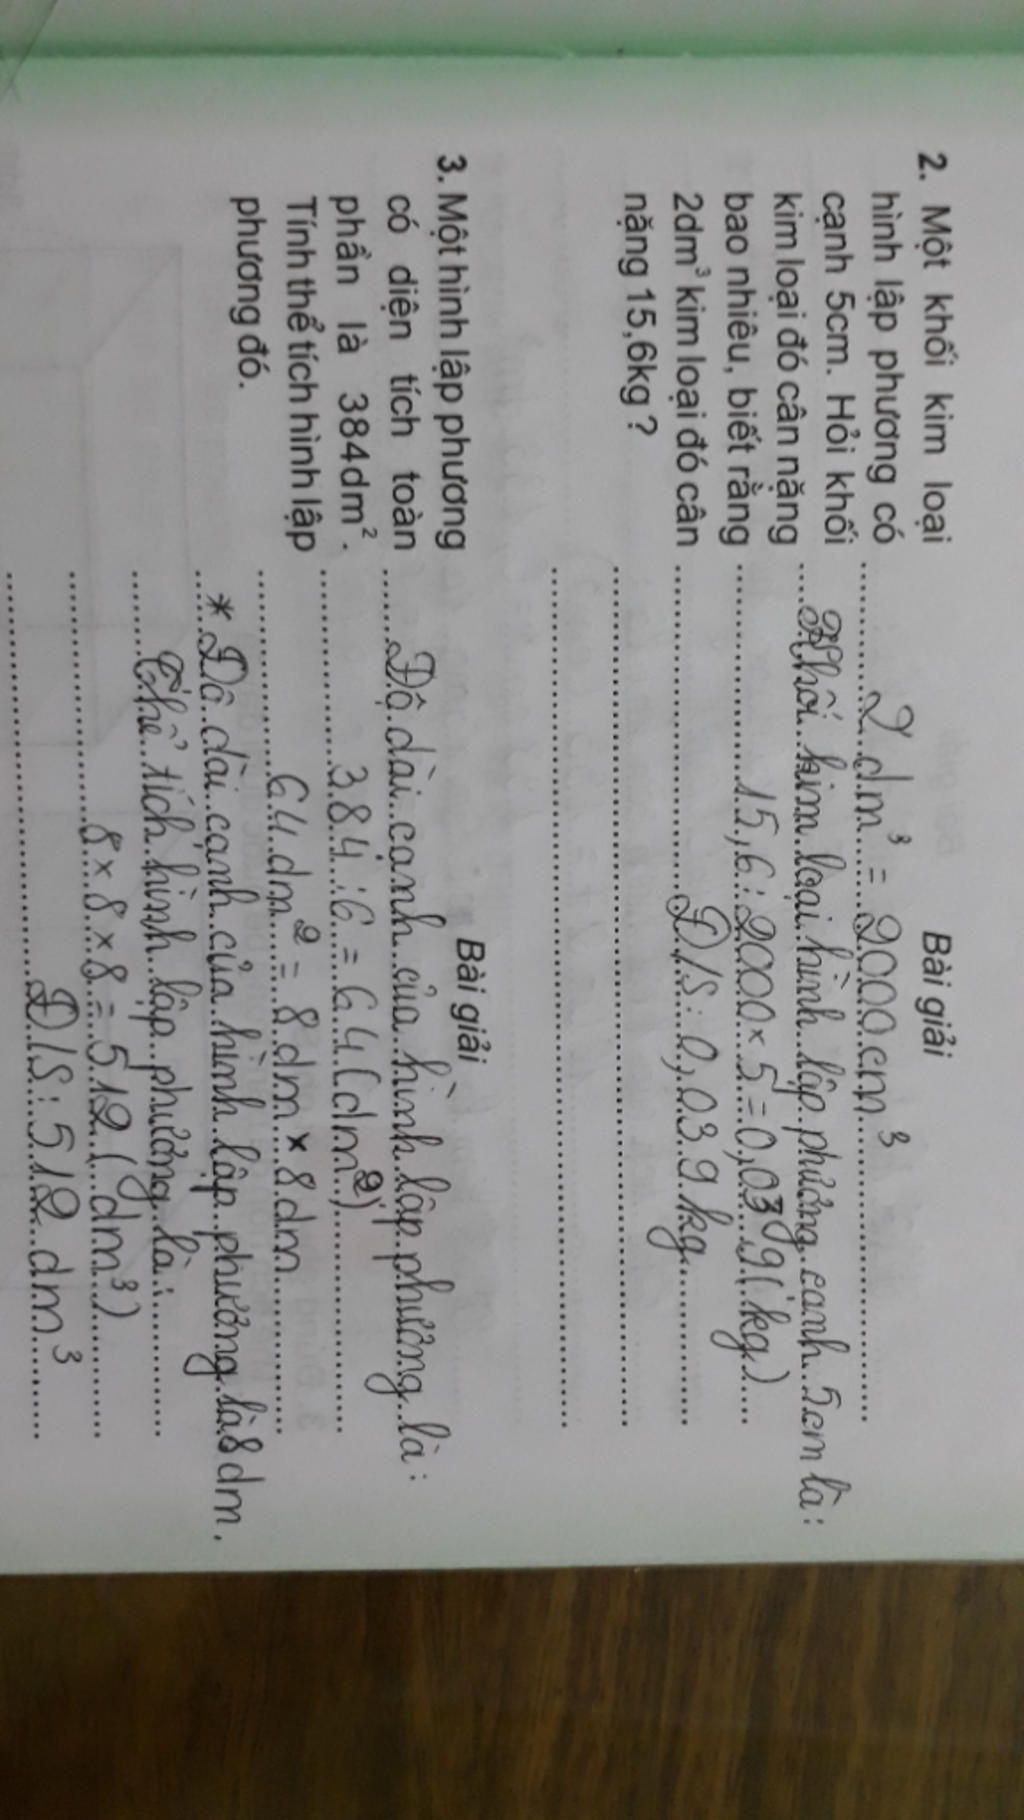 2. Một khối kim loại
hình lập phương có
cạnh 5cm. Hỏi khối
kim loại đó cân nặng
bao nhiêu, biết rằng
2dm³ kim loại đó cân
nặng 15,6kg ?
Bài giải
2 dm³ = 2000 cm³
Khối kim loại hình lập phương cạnh 5cm là:
15,6 : 2000 × 5 = 0,039 (kg)
Đ/S: 0,039 kg
3. Một hình lập phương
có diện tích toàn
phần là 384dm².
Tính thể tích hình lập
phương đó.
Bài giải
Độ dài cạnh của hình lập phương là:
384 : 6 = 64 (dm²)
64 dm² = 8 dm × 8 dm
* Độ dài cạnh của hình lập phương là 8 dm.
Thể tích hình lập phương là:
8 × 8 × 8 = 512 (dm³)
Đ/S: 512 dm³